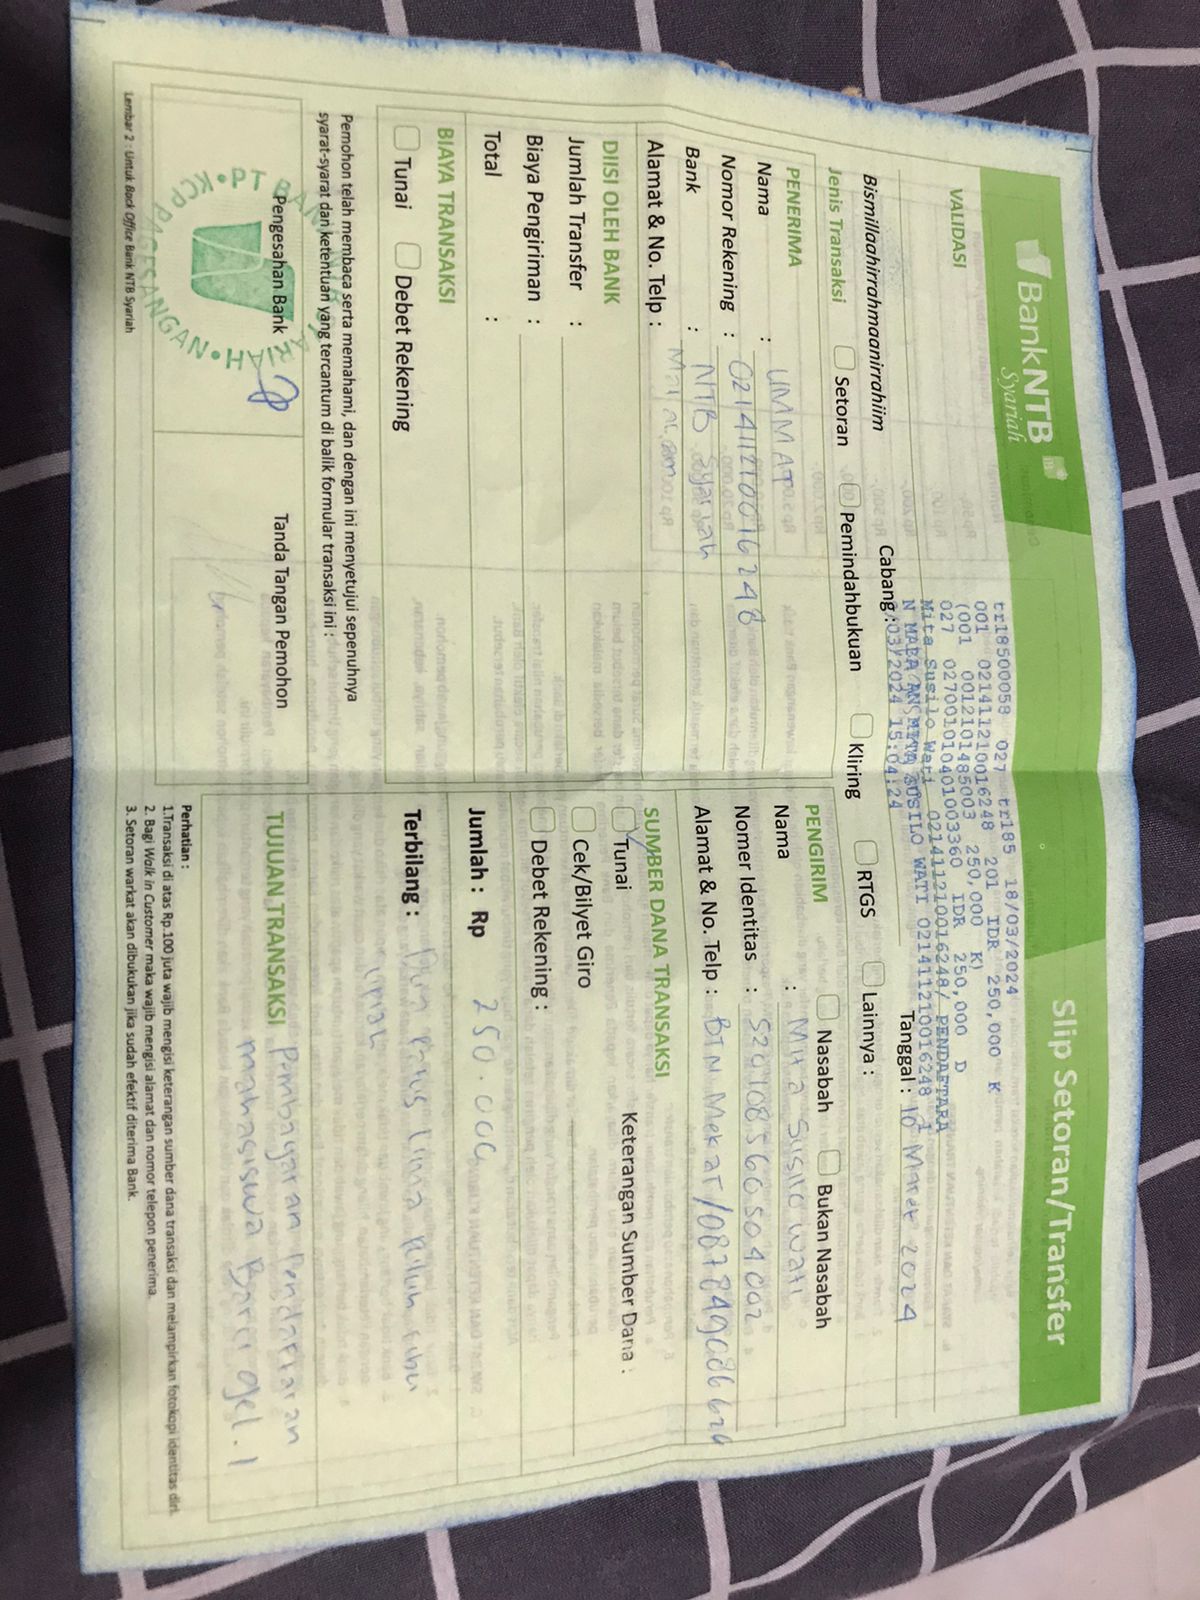 BankNTB
Syariah
Slip Setoran/Transfer
VALIDASI
tr18500058 027 tr185 18/03/2024
001 0214112100016248 201 IDR 250,000 K
(001 0012101485003 250,000 K)
027 0270010104001003360 IDR 250,000 D
Mita Susilo Wati 0214112100016248/ PENDAFTARA
N MABA AN MITA SUSILO WATI 0214112100016248 1
/03/2024 15:04:24
Bismillaahirrahmaanirrahiim
Cabang :
Tanggal : 18 Maret 2024
Jenis Transaksi
Setoran
Pemindahbukuan
Kliring
RTGS
Lainnya :
PENERIMA
Nama : UMMAT
Nomor Rekening : 0214112100016248
Bank : NTB Syariah
Alamat & No. Telp : Mataram
PENGIRIM
Nasabah
Bukan Nasabah
Nama : Mita Susilo Wati
Nomer Identitas : 5201085606504002
Alamat & No. Telp : BTN Mekar/
DIISI OLEH BANK
Jumlah Transfer :
Biaya Pengiriman :
Total :
SUMBER DANA TRANSAKSI
Tunai
Keterangan Sumber Dana :
Cek/Bilyet Giro
Debet Rekening :
BIAYA TRANSAKSI
Tunai
Debet Rekening
Jumlah : Rp 250.000
Terbilang : Dua ratus Lima Puluh ribu
rupiah
Pemohon telah membaca serta memahami, dan dengan ini menyetujui sepenuhnya
syarat-syarat dan ketentuan yang tercantum di balik formular transaksi ini :
Pengesahan Bank
Tanda Tangan Pemohon
PT BANK NTB SYARIAH
KCP PAGESANGAN
TUJUAN TRANSAKSI
Pembayaran Pendaftaran
mahasiswa Baru gel. 1
Perhatian :
1.Transaksi di atas Rp.100 juta wajib mengisi keterangan sumber dana transaksi dan melampirkan fotokopi identitas diri.
2. Bagi Walk in Customer maka wajib mengisi alamat dan nomor telepon penerima.
3. Setoran warkat akan dibukukan jika sudah efektif diterima Bank.
Lembar 2 : Untuk Back Office Bank NTB Syariah